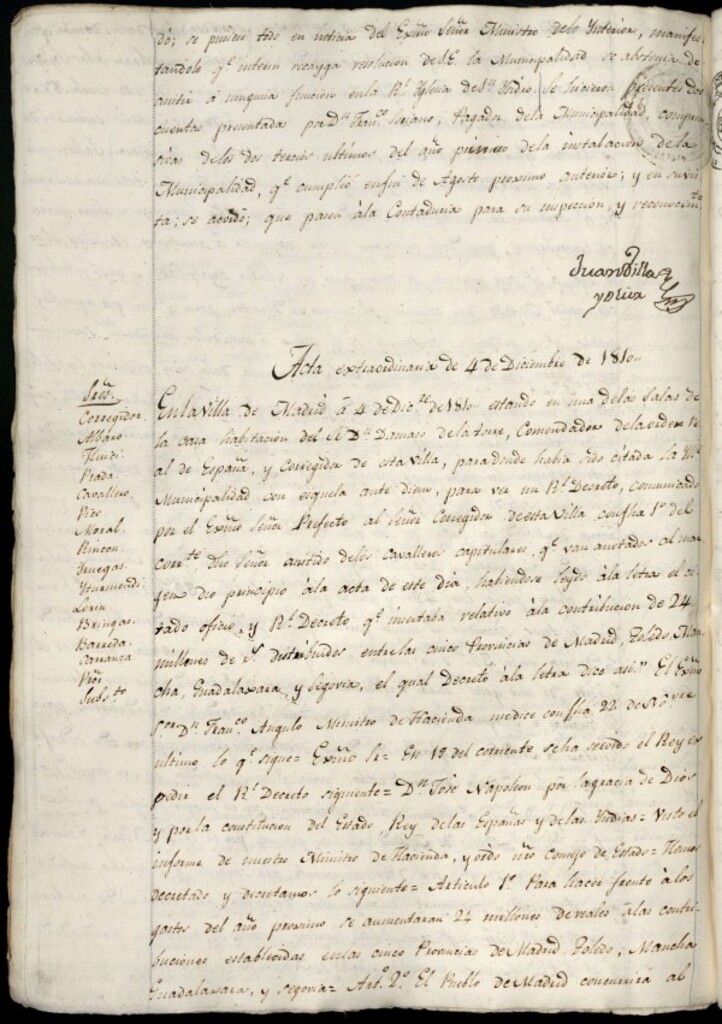 dó; se pusiese todo en noticia del Exmo Señor Ministro delo Ynterior, manifes
tandole qe. interin recayga resolucion de S.E. la Municipalidad se abstenia de
asistir á ninguna funcion enla Rl. Yglesia de Sn. Ysidro. Se hicieron presentes dos
cuentas presentadas por Dn. Franco. Soriano, Pagador dela Municipalidad, compren
sivas delos dos tercios ultimos del año primero dela instalacion dela
Municipalidad, qe. cumplió enfin de Agosto proximo anterior; y en su vis
ta; se acordó; que pasen àla Contaduria para su inspeccion, y reconocimto.
Juan Villa
y Olier
Acta extraordinaria de 4 de Diciembre de 1810.
Sres.
Corregidor
Albaro.
Prada.
Cavallero.
Pico
Moral.
Rincon.
Yruegas.
Yturmendi.
Lerin
Bringas.
Barreda.
Carranza
Substo.
En la Villa de Madrid á 4 de Dicre. de 1810 estando en una delas Salas de
la casa habitacion del Sr. Dn. Damaso dela torre, Comendador dela orden Re
al de España, y Corregidor de esta Villa, para donde habia sido citada la Ylle.
Municipalidad con esquela ante diem, para ver un Rl. Decreto, comunicado
por el Exmo Señor Prefecto al Señor Corregidor de esta Villa confha 1º. del
corrte. dho Señor asistido delos cavalleros capitulares, qe. van anotados al mar
gen dio principio àla acta de este dia, habiendose leydo àla letra el ci
tado oficio, y Rl. Decreto qe. insertaba relativo àla contribucion de 24
millones de rs. distribuidos entre las cinco Provincias de Madrid, Toledo, Man
cha, Guadalaxara, y Segovia, el qual Decreto àla letra dice asi." El Exmo
Sor. Dn. Franco. Angulo Ministro de Hacienda medice con fha 22 de Novre.
ultimo lo qe. sigue= Exmo Sr= En 19 del corriente se ha servido el Rey ex
pedir el Rl. Decreto siguiente= Dn. Jose Napoleon por la gracia de Dios
y por la constitucion del Estado, Rey delas Españas y delas Yndias= Visto el
informe de nuestro Ministro de Hacienda, y oido nro Consejo de Estado= Hemos
decretado y decretamos lo siguiente= Articulo 1º. Para hacer frente à los
gastos del año proximo se aumentaran 24 millones de reales àlas contri
buciones establecidas en las cinco Provincias de Madrid. Toledo, Mancha
Guadalaxara, y Segovia= Arto. 2º. El Pueblo de Madrid concurrirá al